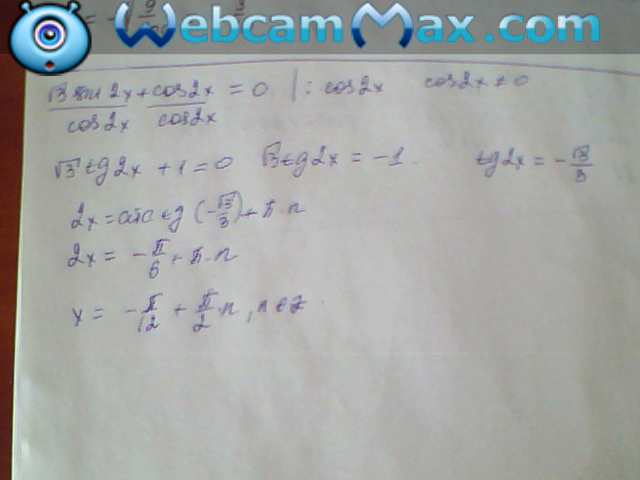 WebcamMax.com
√3 sin 2x + cos 2x / cos 2x cos 2x = 0 | : cos 2x cos 2x ≠ 0
√3 tg 2x + 1 = 0 √3 tg 2x = -1. tg 2x = -√3/3
2x = arctg (-√3/3) + π·n
2x = -π/6 + π·n
x = -π/12 + π/2·n, n∈z.